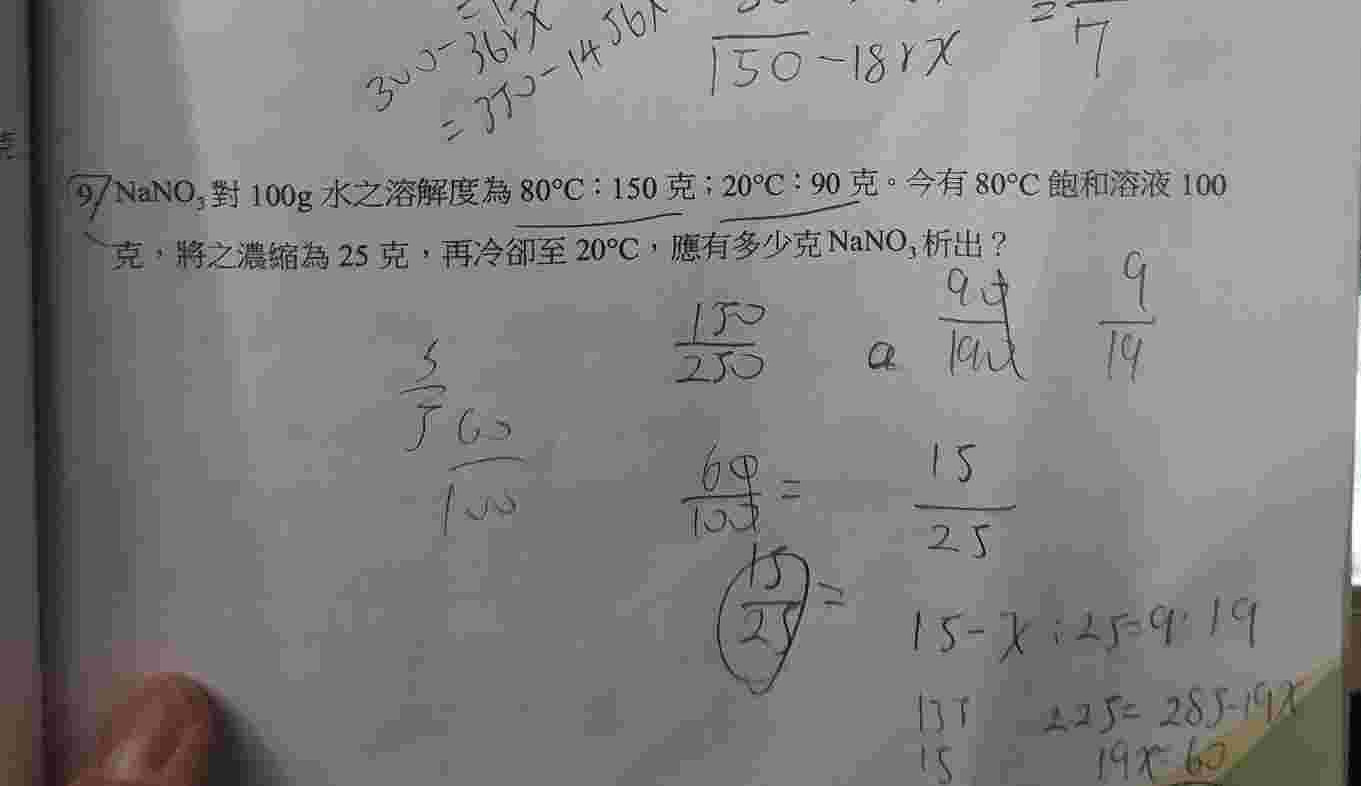 300-36rX
=350-1456X
150-18rX
=
7
9 NaNO₃對 100g 水之溶解度為 80°C：150 克；20°C：90 克。今有 80°C 飽和溶液 100
克，將之濃縮為 25 克，再冷卻至 20°C，應有多少克 NaNO₃析出？
150
250
a
90
190
9
19
60
100
60
100
=
15
25
15
25
=
15-X:25=9:19
135
225=285-19X
15
19X=60